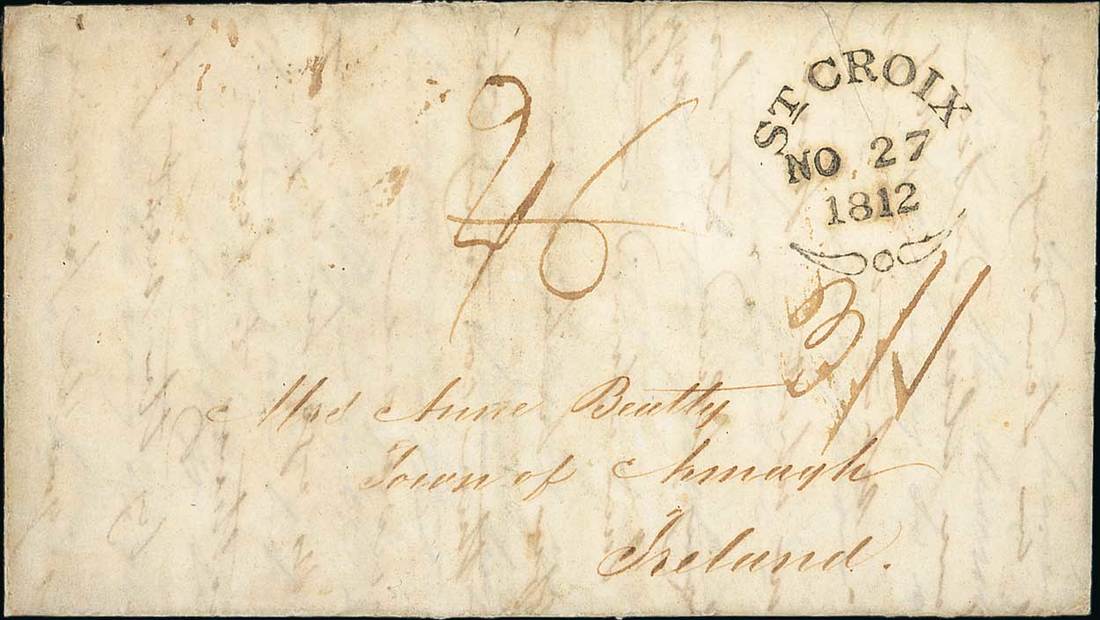 ST CROIX
NO 27
1812
2/6
3/11
Mrs Anne Beatty
Town of Armagh
Ireland.